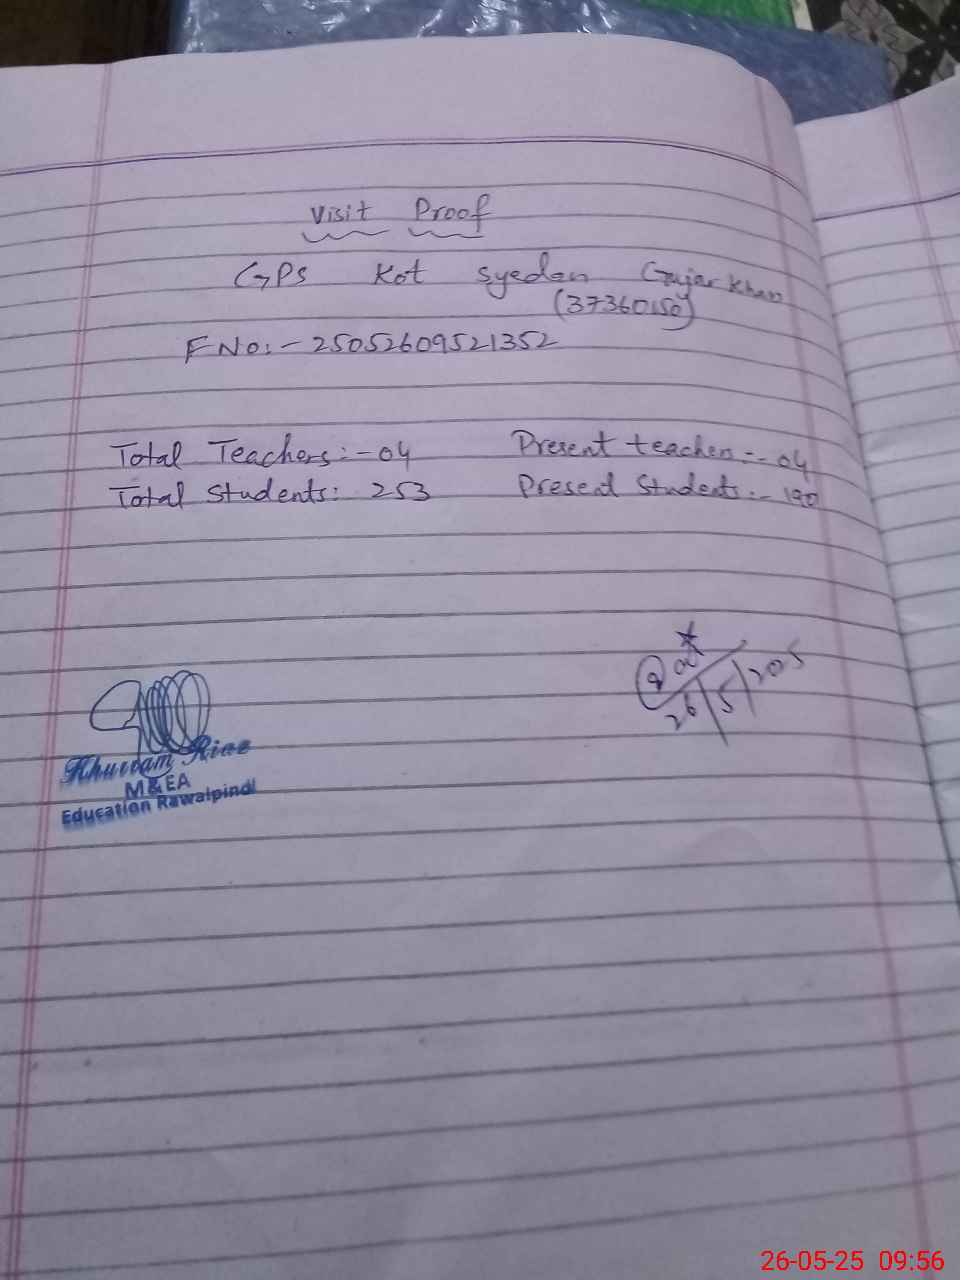 Visit Proof
GPS Kot Syedan Gujar Khan
(37360150)
F No:- 25052609521352
Total Teachers:- 04 Present teachers:- 04
Total Students: 253 Present Students:- 190
26/5/205
Khurram Riaz
M&EA
Education Rawalpindi
26-05-25 09:56